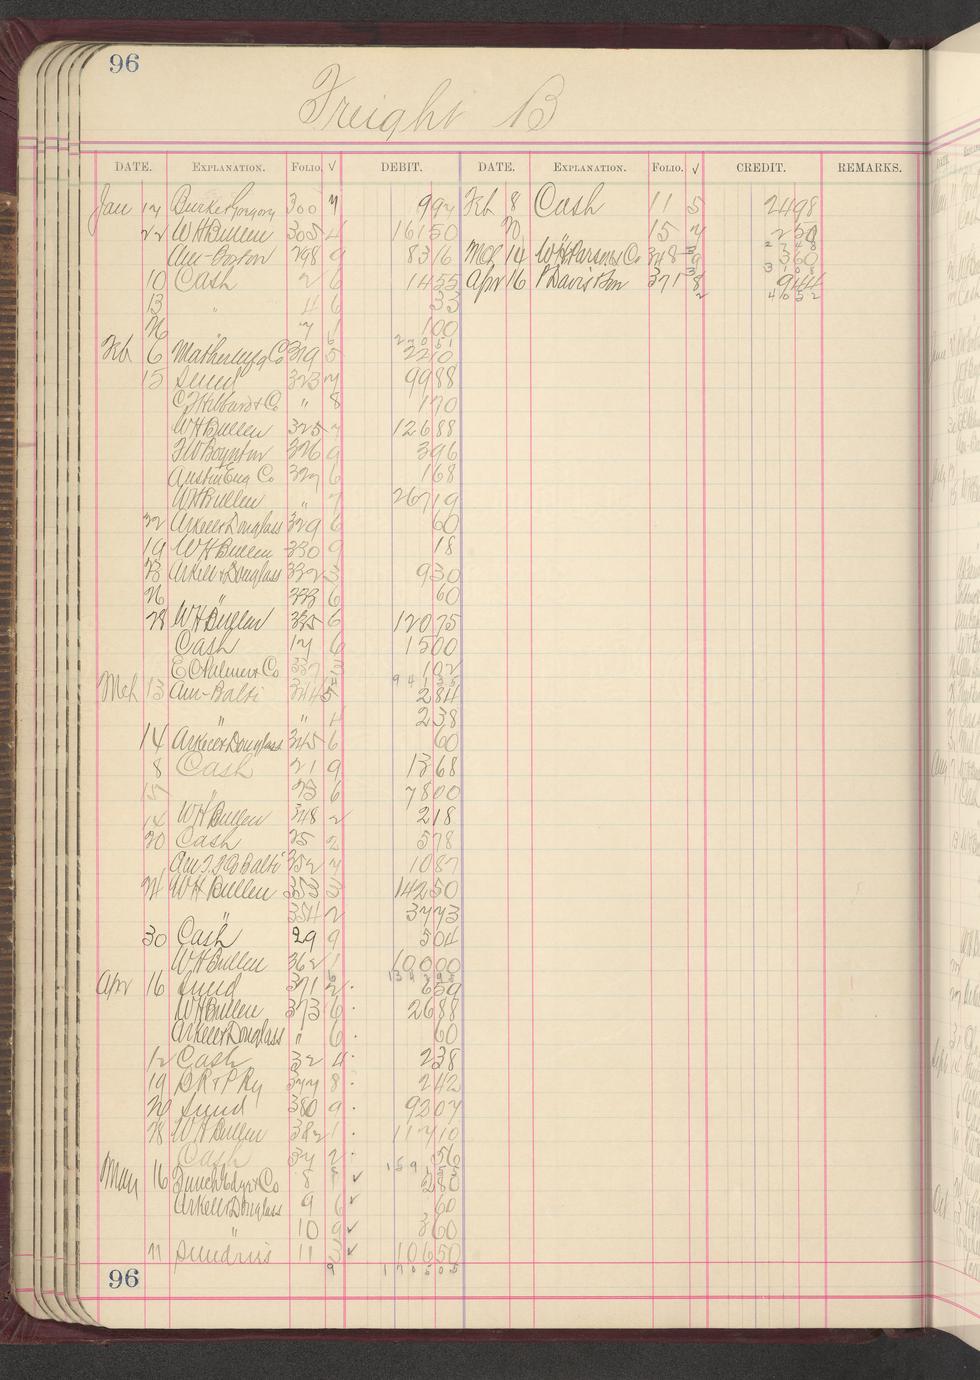 96
Freight B
DATE. EXPLANATION. FOLIO. √ DEBIT. DATE. EXPLANATION. FOLIO. √ CREDIT. REMARKS.
Jan 17 Burke Gregory 300 7 997 Feb 8 Cash 11 5 2498
22 WH Bullen 305 4 16150 20 15 7 250
2748
Am-Boston 298 9 8316 Mch 14 WH Parsons & Co 348 9 360
3108
10 Cash 2 6 1455 Apr 16 P Davis 371 8 944
4052
13 " 4 6 33
26 7 1 100
27051
Feb 6 Mather Mfg Co 319 5 2210
15 Sund 323 7 9988
C J Hibbard & Co " 8 170
WH Bullen 325 7 12688
FW Boynton 326 9 396
Austin Eng Co 327 6 168
WH Bullen " 7 26719
22 Arkell & Douglass 329 6 60
19 WH Bullen 330 9 18
23 Arkell & Douglass 332 3 930
26 " 333 6 60
28 WH Bullen 335 6 12075
Cash 17 6 1500
E C Palmer & Co 337 102
94135
Mch 13 Am-Balti 344 5 284
" " 4 238
14 Arkell & Douglass 345 6 60
8 Cash 21 9 1368
15 " 23 6 7800
14 WH Bullen 348 2 218
20 Cash 25 2 578
Am T P Co Balti 352 7 1087
24 WH Bullen 353 3 14250
" 354 2 3773
30 Cash 29 9 504
WH Bullen 362 1 10000
134295
Apr 16 Sund 371 2 659
WH Bullen 373 6 2688
Arkell & Douglass " 6 60
12 Cash 32 4 238
19 BR&P Ry 377 8 242
20 Sund 380 9 9307
28 WH Bullen 382 1 11710
Cash 34 2 56
159155
May 16 Funch Edye & Co 8 8 ✓ 280
Arkell & Douglass 9 6 ✓ 60
" 10 9 ✓ 360
11 Sundries 11 3 ✓ 10650
9 170505
96